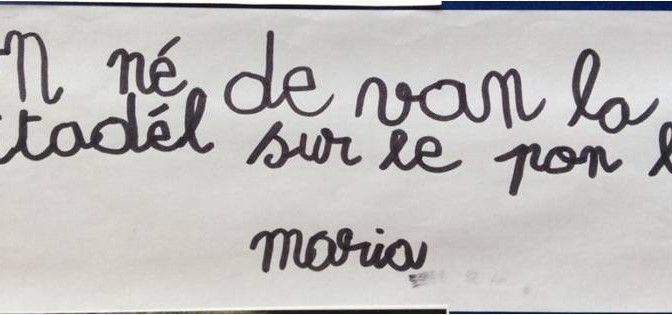 n né de van la
tadél sur le pon l
maria